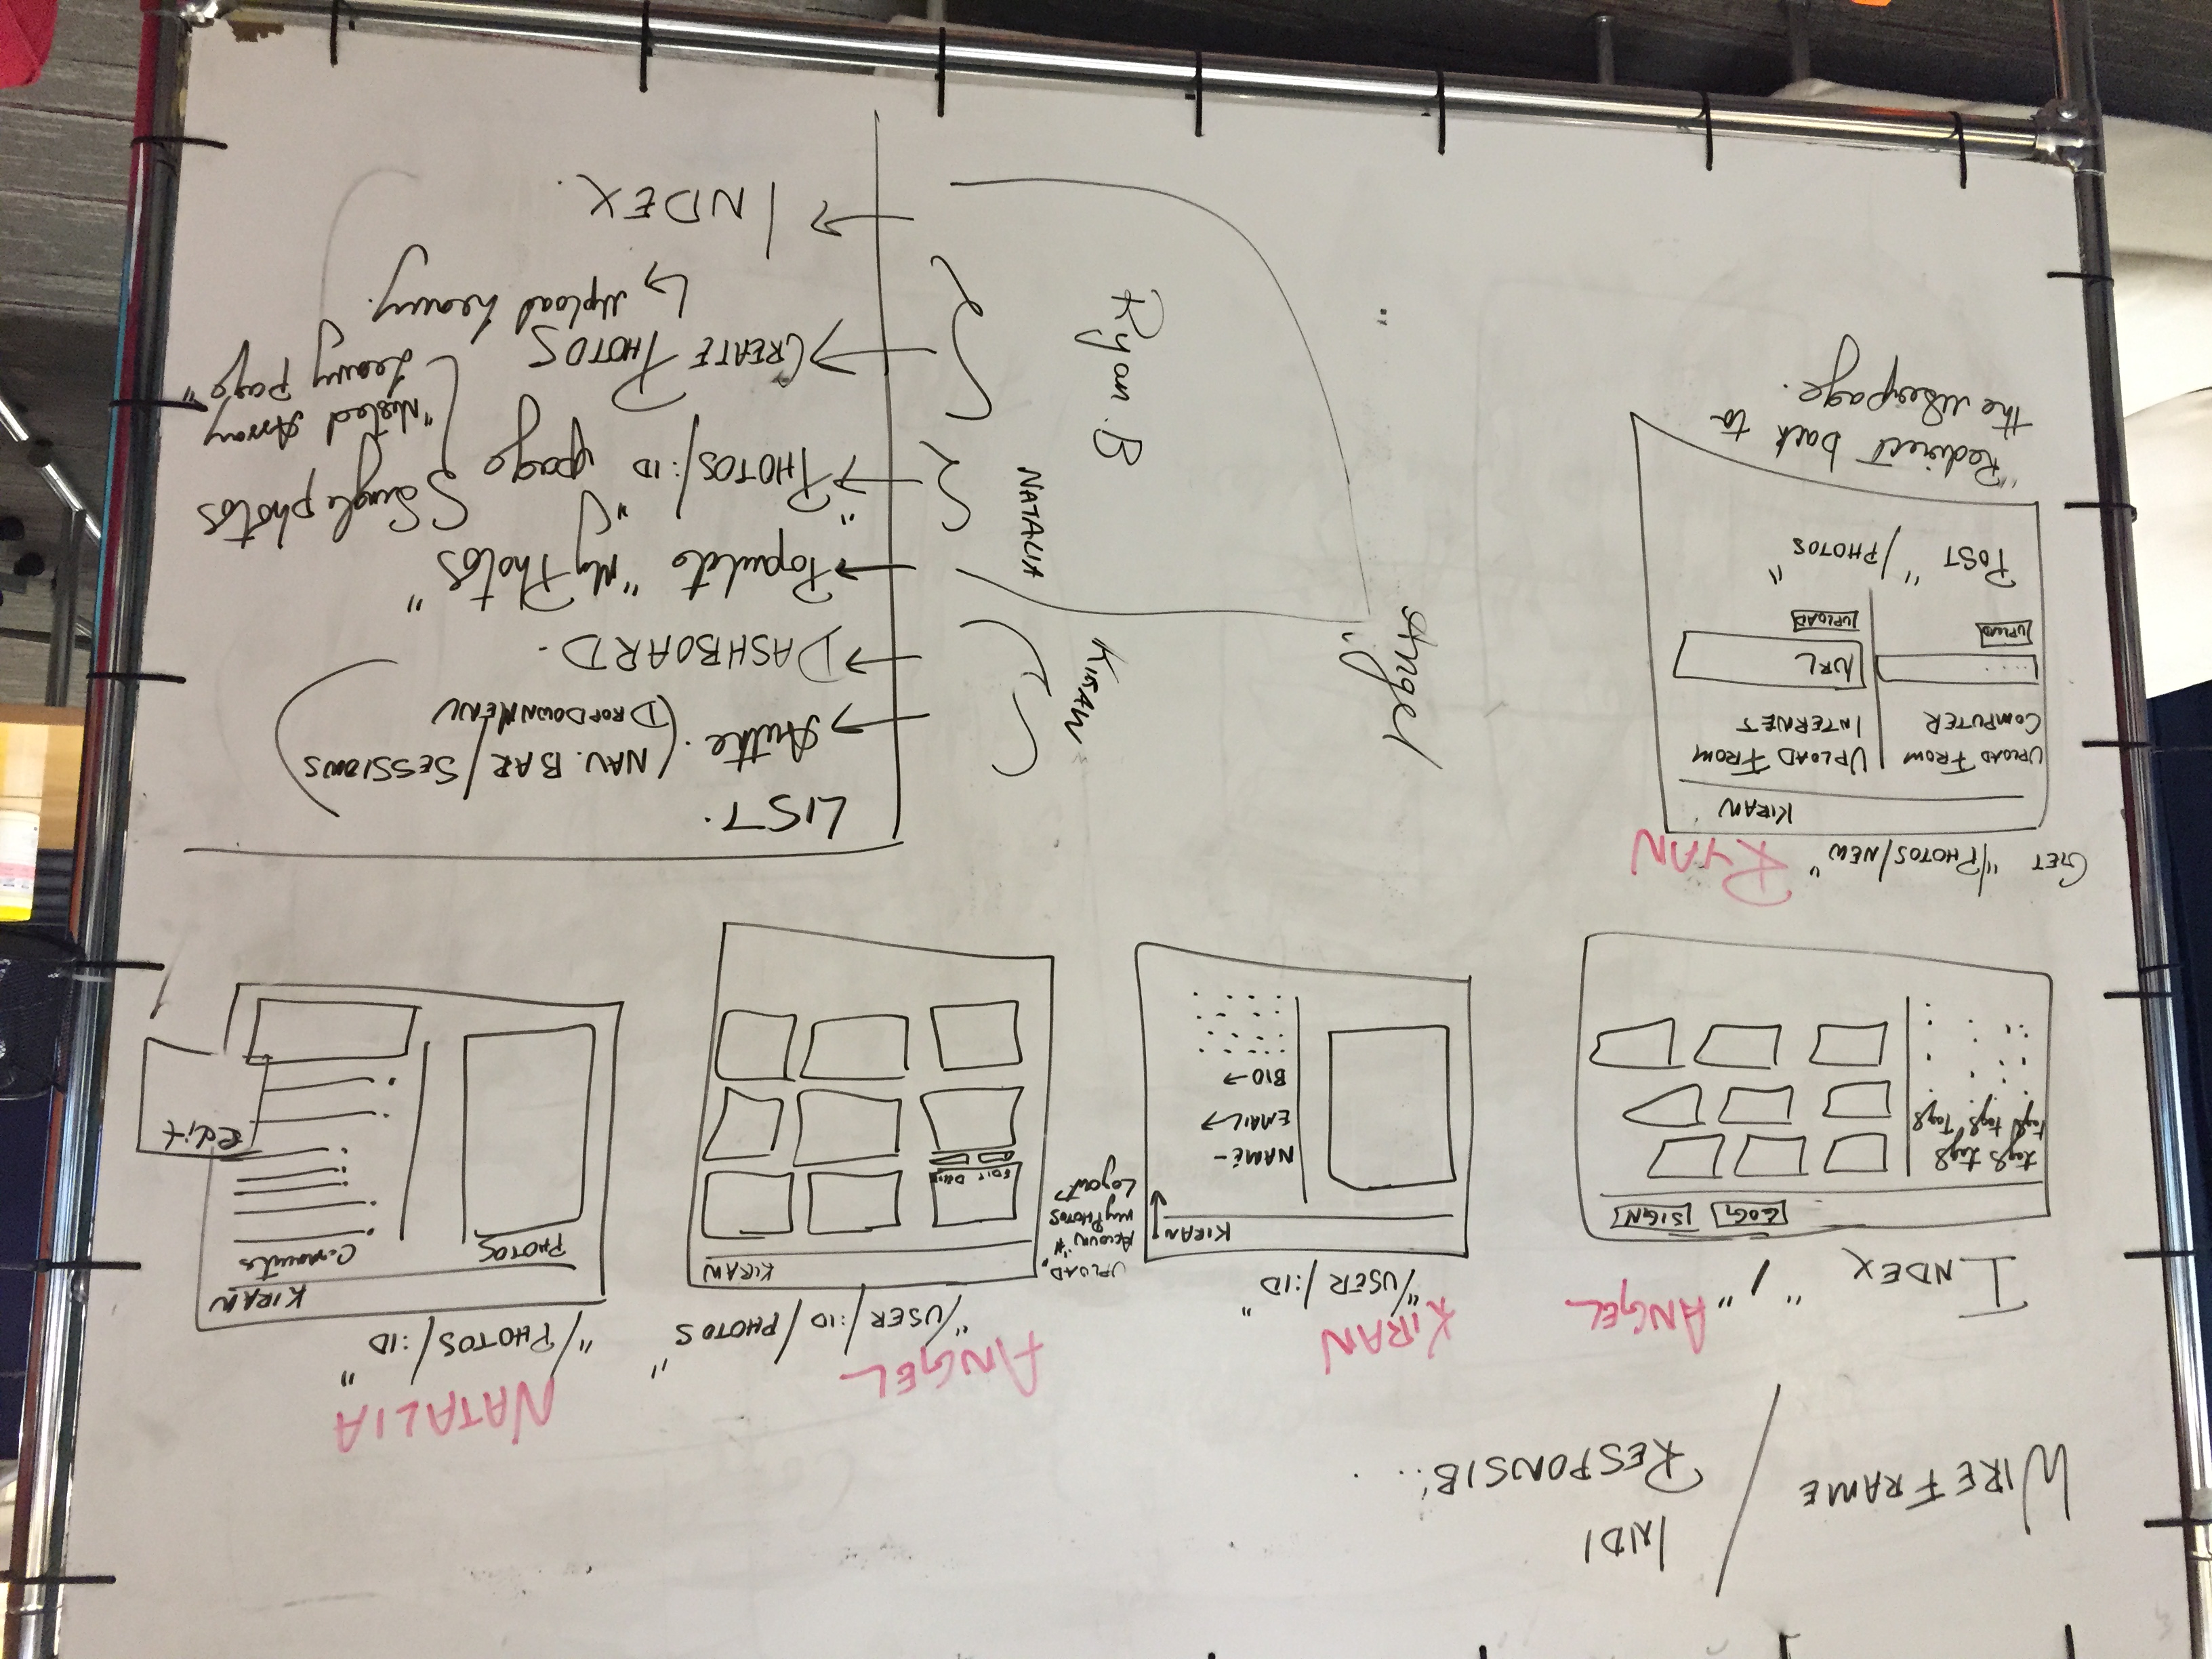 WIREFRAME / INDI
RESPONSIB...
INDEX "/" ANGEL
LOG SIGN
tags tags
tags tags Tags
KIRAN
"/USER/:ID"
KIRAN
NAME-
EMAIL→
BIO→
UPLOAD
Account
My PHOTOS
Logout
ANGEL
"/USER/:ID/PHOTOS"
KIRAN
EDIT
NATALIA
"/PHOTOS/:ID"
KIRAN
PHOTOS
Comments
edit
GET "/PHOTOS/NEW" RYAN
KIRAN
UPLOAD FROM
COMPUTER
UPLOAD
UPLOAD FROM
INTERNET
URL
UPLOAD
POST "/PHOTOS"
"Redirect back to
the userpage.
Angel
KIRAN
NATALIA
Ryan.B
LIST.
→ Authe. (NAV. BAR/SESSIONS
DROPDOWNMENU
→ DASHBOARD.
→ Populate "My Photos"
→ "PHOTOS/:ID" page
Single photos
"Nested Array
heavy page"
→ CREATE PHOTOS
↳ upload heavy.
→ INDEX.